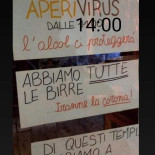 APERIVIRUS
DALLE 14:00
l'alcol ci proteggerà
ABBIAMO TUTTE
LE BIRRE
Tranne la corona!
DI QUESTI TEMPI